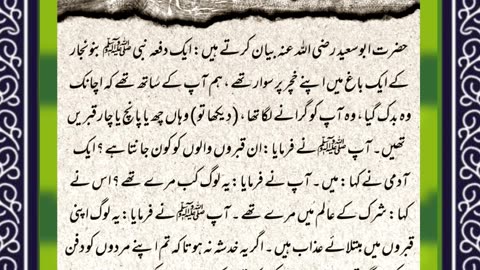 حضرت ابوسعید رضی اللہ عنہ بیان کرتے ہیں: ایک دفعہ نبی ﷺ بنونجار
کے ایک باغ میں اپنے خچر پر سوار تھے، ہم آپ کے ساتھ تھے کہ اچانک
وہ بدک گیا، وہ آپ کو گرانے لگا تھا، (دیکھا تو) وہاں چھ یا پانچ یا چار قبریں
تھیں۔ آپ ﷺ نے فرمایا: ان قبروں والوں کو کون جانتا ہے؟ ایک
آدمی نے کہا: میں۔ آپ نے فرمایا: یہ لوگ کب مرے تھے؟ اس نے
کہا: شرک کے عالم میں مرے تھے۔ آپ ﷺ نے فرمایا: یہ لوگ اپنی
قبروں میں مبتلائے عذاب ہیں۔ اگر یہ خدشہ نہ ہوتا کہ تم اپنے مردوں کو دفن